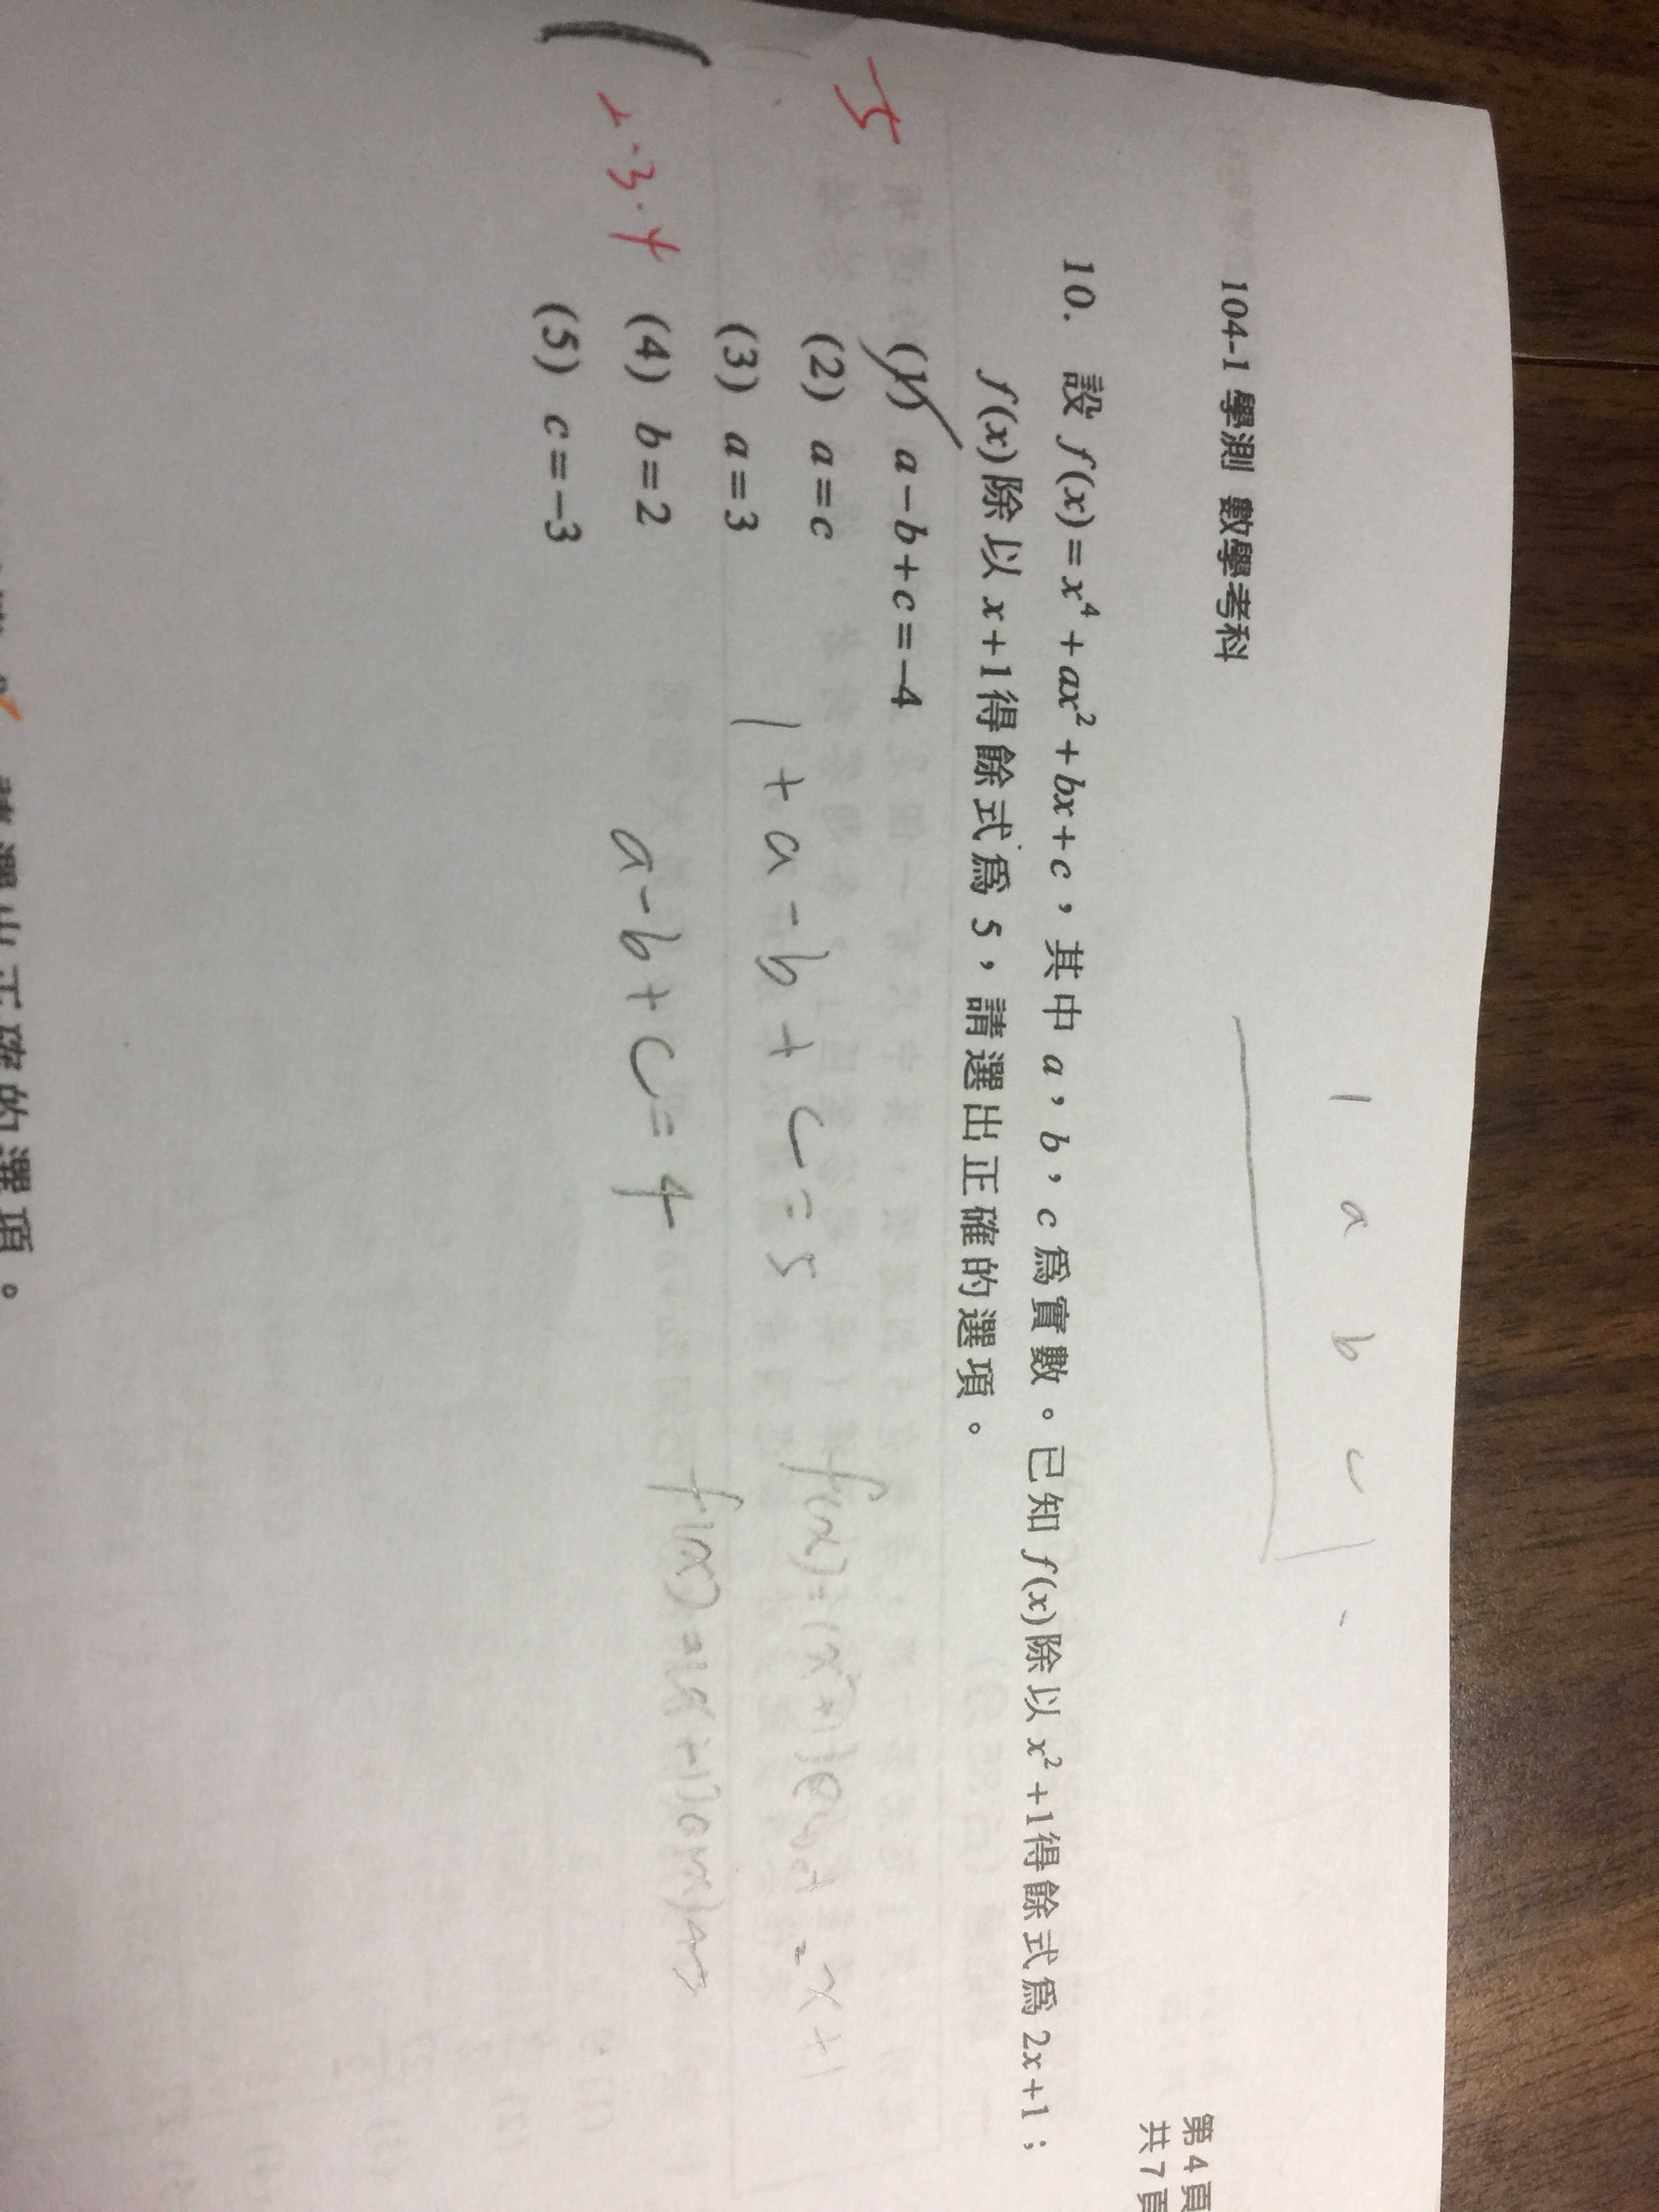 1 a b c
104-1 學測 數學考科
第 4 頁
共 7 頁
10. 設 f(x)=x⁴+ax²+bx+c，其中 a，b，c 爲實數。已知 f(x)除以 x²+1得餘式爲 2x+1；
f(x)除以 x+1得餘式爲 5，請選出正確的選項。
-5
(1) a-b+c=-4
(2) a=c
(3) a=3
(4) b=2
(5) c=-3
2.3.4
1+a-b+c=5
a-b+c=4
請選出正確的選項。